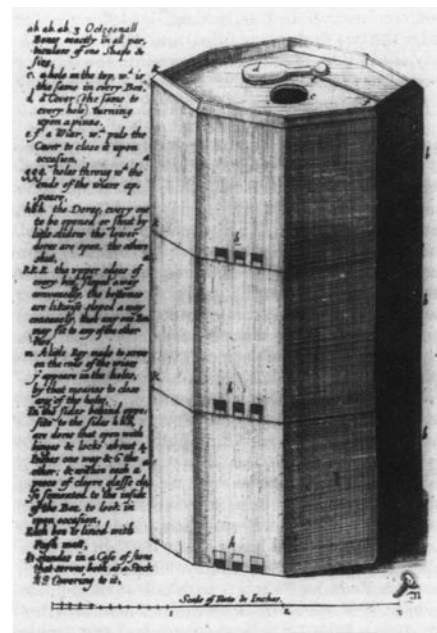 ab. ab. ab. 3 Octogonall
Boxes exactly in all par,
ticulars of one Shape &
size,
c. a hole in the top, wch is
the same in every Box,
d. a Cover (the same to
every hole) turning
upon a pinne,
e f a Wiar, wch puls the
Cover to close it upon
occasion,
ggg. holes throug wch the
ends of the wiars ap,
peare,
hhh. the Dores, every one
to be opened or shut by
litle sliders the lower
dores are open, the others
shut,
K.K.K. the upper edges of
every box sloped away
the bottomes
are likewise sloped a way
that any one Box
may fit to any of the other
m. A litle Key made to screw
on the ends of the wiars
yt appeare in the holes,
by that meanes to close
any of the holes,
In the sides behind oppo,
site to the sides hhh,
are dores that open with
hinges & locks about 4
Inches one way & 6 the
other; & within each a
peece of cleare glasse
cemented to the inside
of the Box, to look in
upon occasion;
Each box is lined with
matt,
It standes in a Case of
that serves both as a Stock
& a Covering to it,
d
e
c
k
b
a
h
k
a
b
h
k
a
b
h
m
Scale of Foote & Inches.
1 2 3